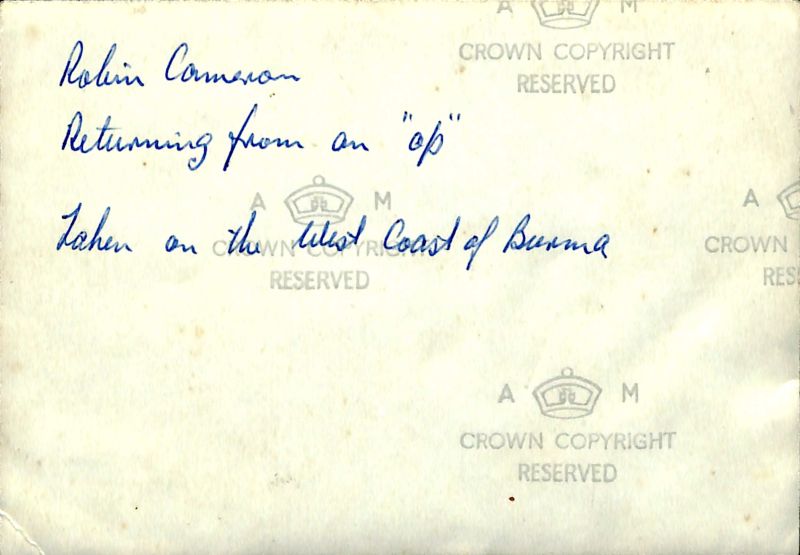 A M
CROWN COPYRIGHT
RESERVED
Robin Cameron
Returning from an "op"
Taken on the West Coast of Burma
A M
CROWN COPYRIGHT
RESERVED
A
CROWN
RES
A M
CROWN COPYRIGHT
RESERVED